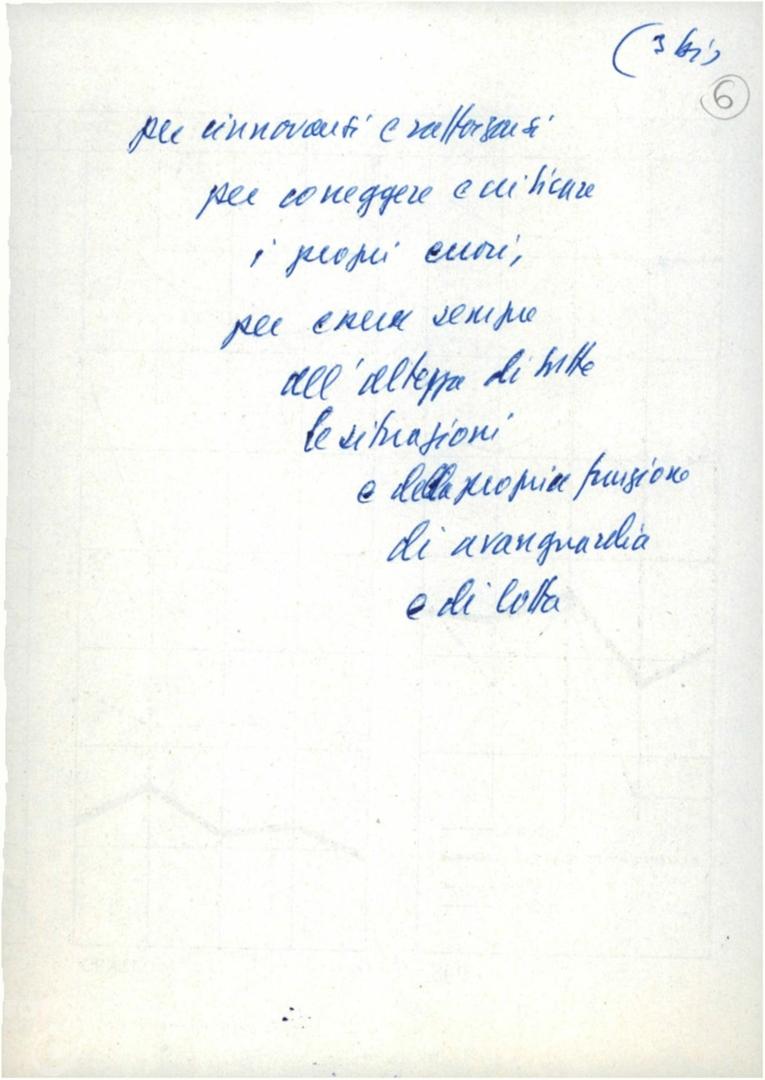 (3 bis
6
per rinnovarsi e rafforzarsi
per correggere e criticare
i propri errori,
per essere sempre
all'altezza di tutte
le situazioni
e della propria funzione
di avanguardia
e di lotta